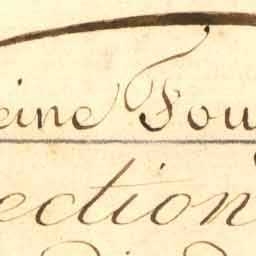 eine Fou
ection